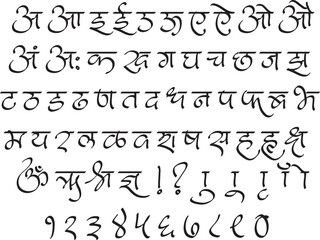 अ आ इ ई ठ ऊ ए ऐ ओ औ
अं अः क ख ग घ च छ ज झ
ट ठ ड ढ ण त द ध न प फ ब भ
म य र ल ळ व श ष स ह हृ क्ष
ॐ ऋ श्रि ज्ञ ! ?
१ २ ३ ४ ५ ६ ७ ८ ९ ०